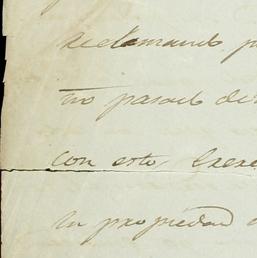 reclamando p
no pasado de
con esto
su propiedad